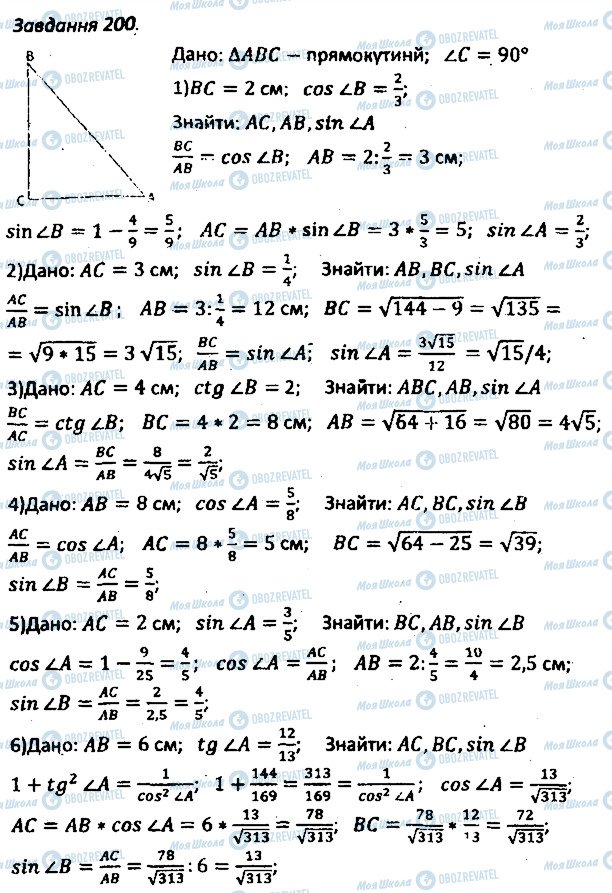 Завдання 200.
B
C
A
Дано: ΔABC − прямокутиній; ∠C = 90°
1)BC = 2 см; cos ∠B = 2/3;
Знайти: AC, AB, sin ∠A
BC/AB = cos ∠B; AB = 2: 2/3 = 3 см;
sin ∠B = 1 − 4/9 = 5/9; AC = AB * sin ∠B = 3 * 5/3 = 5; sin ∠A = 2/3;
2)Дано: AC = 3 см; sin ∠B = 1/4; Знайти: AB, BC, sin ∠A
AC/AB = sin ∠B; AB = 3: 1/4 = 12 см; BC = √(144 − 9) = √135 =
= √(9 * 15) = 3 √15; BC/AB = sin ∠A; sin ∠A = 3√15/12 = √15/4;
3)Дано: AC = 4 см; ctg ∠B = 2; Знайти: ABC, AB, sin ∠A
BC/AC = ctg ∠B; BC = 4 * 2 = 8 см; AB = √(64 + 16) = √80 = 4√5;
sin ∠A = BC/AB = 8/4√5 = 2/√5;
4)Дано: AB = 8 см; cos ∠A = 5/8; Знайти: AC, BC, sin ∠B
AC/AB = cos ∠A; AC = 8 * 5/8 = 5 см; BC = √(64 − 25) = √39;
sin ∠B = AC/AB = 5/8;
5)Дано: AC = 2 см; sin ∠A = 3/5; Знайти: BC, AB, sin ∠B
cos ∠A = 1 − 9/25 = 4/5; cos ∠A = AC/AB; AB = 2: 4/5 = 10/4 = 2,5 см;
sin ∠B = AC/AB = 2/2,5 = 4/5;
6)Дано: AB = 6 см; tg ∠A = 12/13; Знайти: AC, BC, sin ∠B
1 + tg² ∠A = 1/cos² ∠A; 1 + 144/169 = 313/169 = 1/cos² ∠A; cos ∠A = 13/√313;
AC = AB * cos ∠A = 6 * 13/√313 = 78/√313; BC = 78/√313 * 12/13 = 72/√313;
sin ∠B = AC/AB = 78/√313 : 6 = 13/√313;